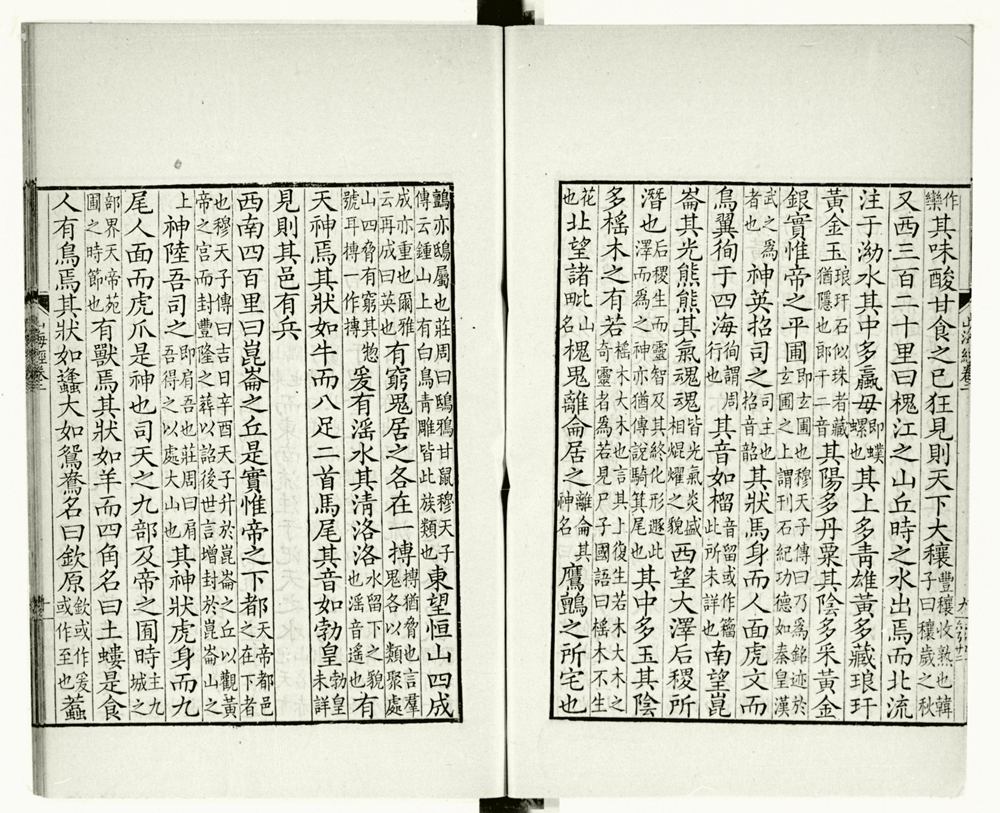 作欒其味酸甘食之已狂見則天下大穰豐穰收熟也韓子曰穰歲之秋
又西三百二十里曰槐江之山丘時之水出焉而北流
注于泑水其中多蠃母即蝶螺也其上多青雄黃多藏琅玕
黃金玉琅玕石似珠者藏猶隱也郎干二音其陽多丹粟其陰多采黃金
銀實惟帝之平圃即玄圃也穆天子傳曰乃爲銘迹於玄圃之上謂刊石紀功德如秦皇漢
武之爲者也神英招司之司主也招音韶其狀馬身而人面虎文而
鳥翼徇于四海徇謂周行也其音如榴音留或作籀此所未詳也南望崑
崙其光熊熊其氣魂魂皆光氣炎盛相焜燿之貌西望大澤后稷所
潛也后稷生而靈智及其終化形遯此澤而爲之神亦猶傅說騎箕尾也其中多玉其陰
多榣木之有若榣木大木也言其上復生若木大木之奇靈者爲若見尸子國語曰榣木不生
花也北望諸毗山名槐鬼離侖居之離侖其神名鷹鸇之所宅也
鸇亦鴟屬也莊周曰鴟鴉甘鼠穆天子傳云鍾山上有白鳥青雕皆此族類也東望恒山四成
成亦重也爾雅云再成曰英也有窮鬼居之各在一搏搏猶脅也言羣鬼各以類聚處
山四脅有窮其惣號耳搏一作摶爰有滛水其清洛洛水留下之貌也滛音遙也有
天神焉其狀如牛而八足二首馬尾其音如勃皇勃皇未詳
見則其邑有兵
西南四百里曰崑崙之丘是實惟帝之下都天帝都邑之在下者
也穆天子傳曰吉日辛酉天子升於崑崙之丘以觀黃帝之宮而封豐隆之葬以詔後世言增封於崑崙山之
上神陸吾司之即肩吾也莊周曰肩吾得之以處大山也其神狀虎身而九
尾人面而虎爪是神也司天之九部及帝之囿時主九城之
部界天帝苑圃之時節也有獸焉其狀如羊而四角名曰土螻是食
人有鳥焉其狀如蠭大如鴛鴦名曰欽原欽或作爰或作至也蠚
山海經卷二